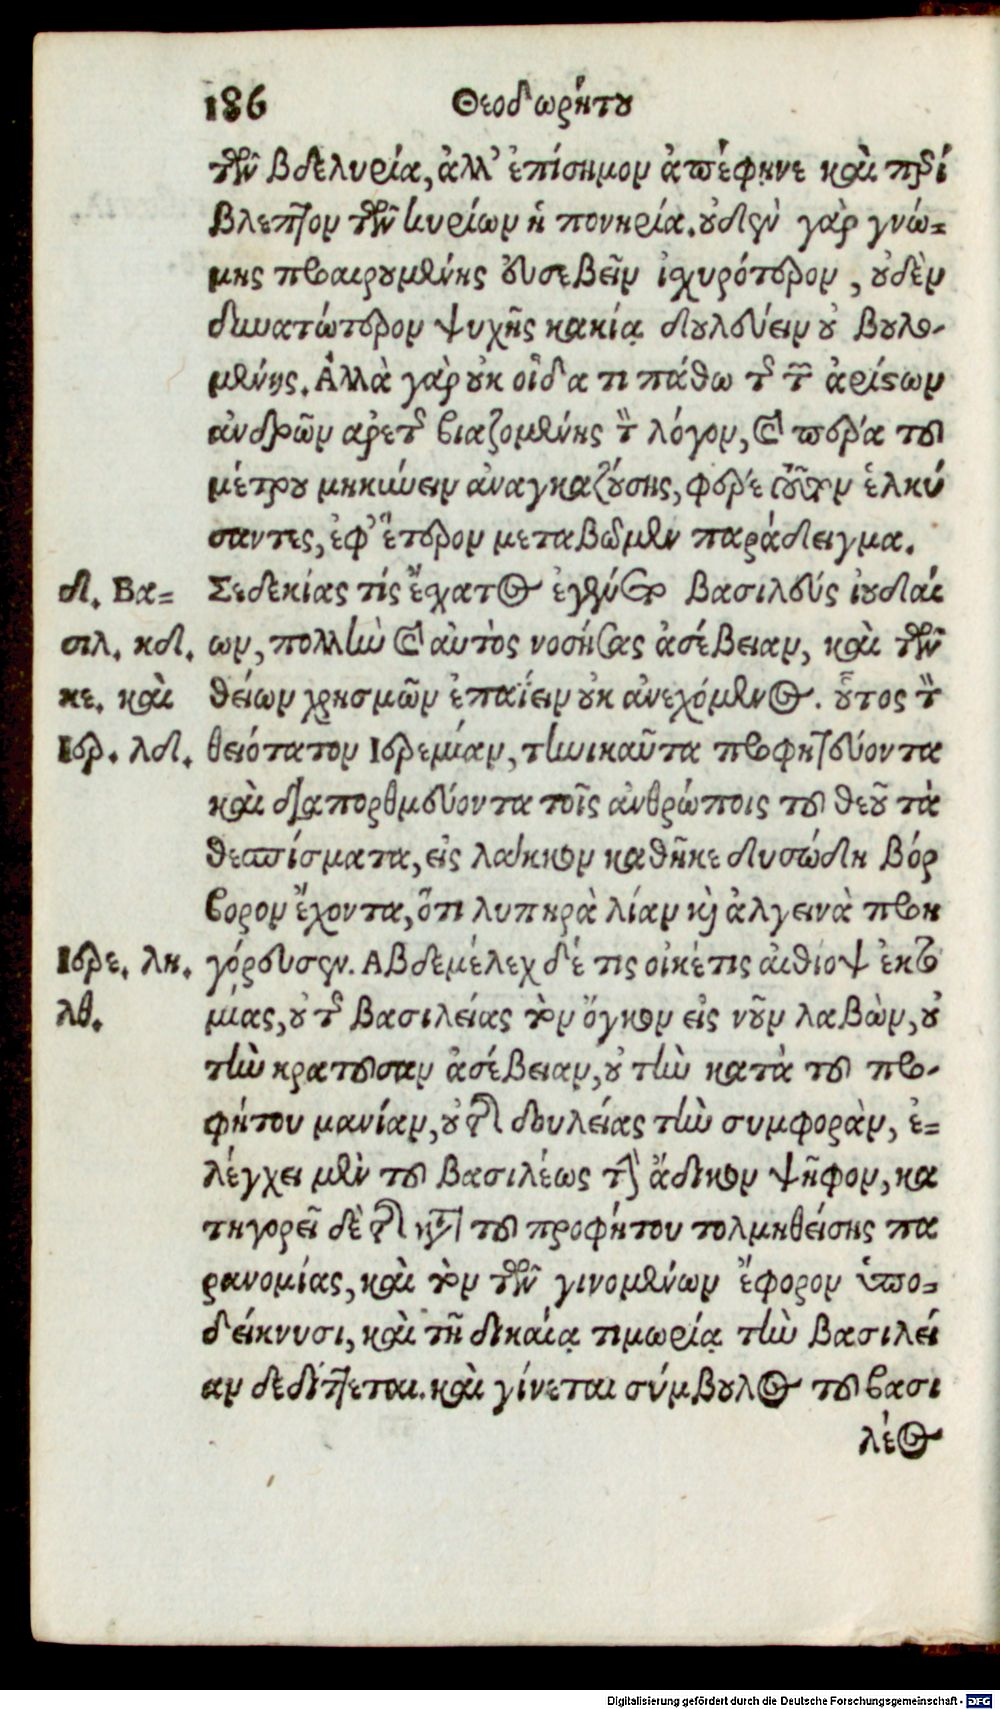 186 Θεοδωρήτου
τῶν βδελυρία, ἀλλ' ἐπίσημον ἀπέφηνε καὶ περί
βλεπτον τῶν κυρίων ἡ πονηρία. οὐδὲν γὰρ γνώ-
μης προαιρουμένης εὐσεβεῖν ἰσχυρότερον, οὐδὲν
δυνατώτερον ψυχῆς κακίᾳ δουλεύειν οὐ βουλο-
μένης. Ἀλλὰ γὰρ οὐκ οἶδα τι πάθω τῆς τῶν ἀρίστων
ἀνδρῶν ἀρετῆς βιαζομένης τὸν λόγον, καὶ πέρα τοῦ
μέτρου μηκύνειν ἀναγκαζούσης, φέρε τοῦτον ἑλκύ
σαντες, ἐφ' ἕτερον μεταβῶμεν παράδειγμα.
δ. Βα-
σιλ. κδ.
κε. καὶ
Ιερ. λδ.
Σεδεκίας τίς ἔσχατος ἐγένετο βασιλεὺς ἰουδαί
ων, πολλὴν καὶ αὐτὸς νοσήσας ἀσέβειαν, καὶ τῶν
θείων χρησμῶν ἐπαΐειν οὐκ ἀνεχόμενος. οὗτος τὸν
θειότατον Ιερεμίαν, τηνικαῦτα προφητεύοντα
καὶ διαπορθμεύοντα τοῖς ἀνθρώποις τοῦ θεοῦ τὰ
θεσπίσματα, εἰς λάκκον καθῆκε δυσώδη βόρ
βορον ἔχοντα, ὅτι λυπηρὰ λίαν καὶ ἀλγεινὰ προη
Ιερε. λη.
λθ.
γόρευσεν. Αβδεμέλεχ δέ τις οἰκέτις αἰθίοψ ἐκτο
μίας, οὐ τῆς βασιλείας τὸν ὄγκον εἰς νοῦν λαβὼν, οὐ
τὴν κρατοῦσαν ἀσέβειαν, οὐ τὴν κατὰ τοῦ προ-
φήτου μανίαν, οὐ τῆς δουλείας τὴν συμφορὰν, ἐ-
λέγχει μὲν τοῦ βασιλέως τὴν ἄδικον ψῆφον, κα
τηγορεῖ δὲ τῆς κατὰ τοῦ προφήτου τολμηθείσης πα
ρανομίας, καὶ τὸν τῶν γινομένων ἔφορον ὑπο-
δείκνυσι, καὶ τῇ δικαίᾳ τιμωρίᾳ τὴν βασιλεί
αν δεδίττεται. καὶ γίνεται σύμβουλος τοῦ βασι
λέος
Digitalisierung gefördert durch die Deutsche Forschungsgemeinschaft - DFG